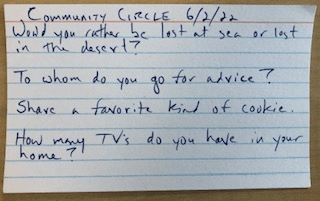 COMMUNITY CIRCLE 6/2/22
Would you rather be lost at sea or lost
in the desert?
To whom do you go for advice?
Share a favorite kind of cookie.
How many TV's do you have in your
home?